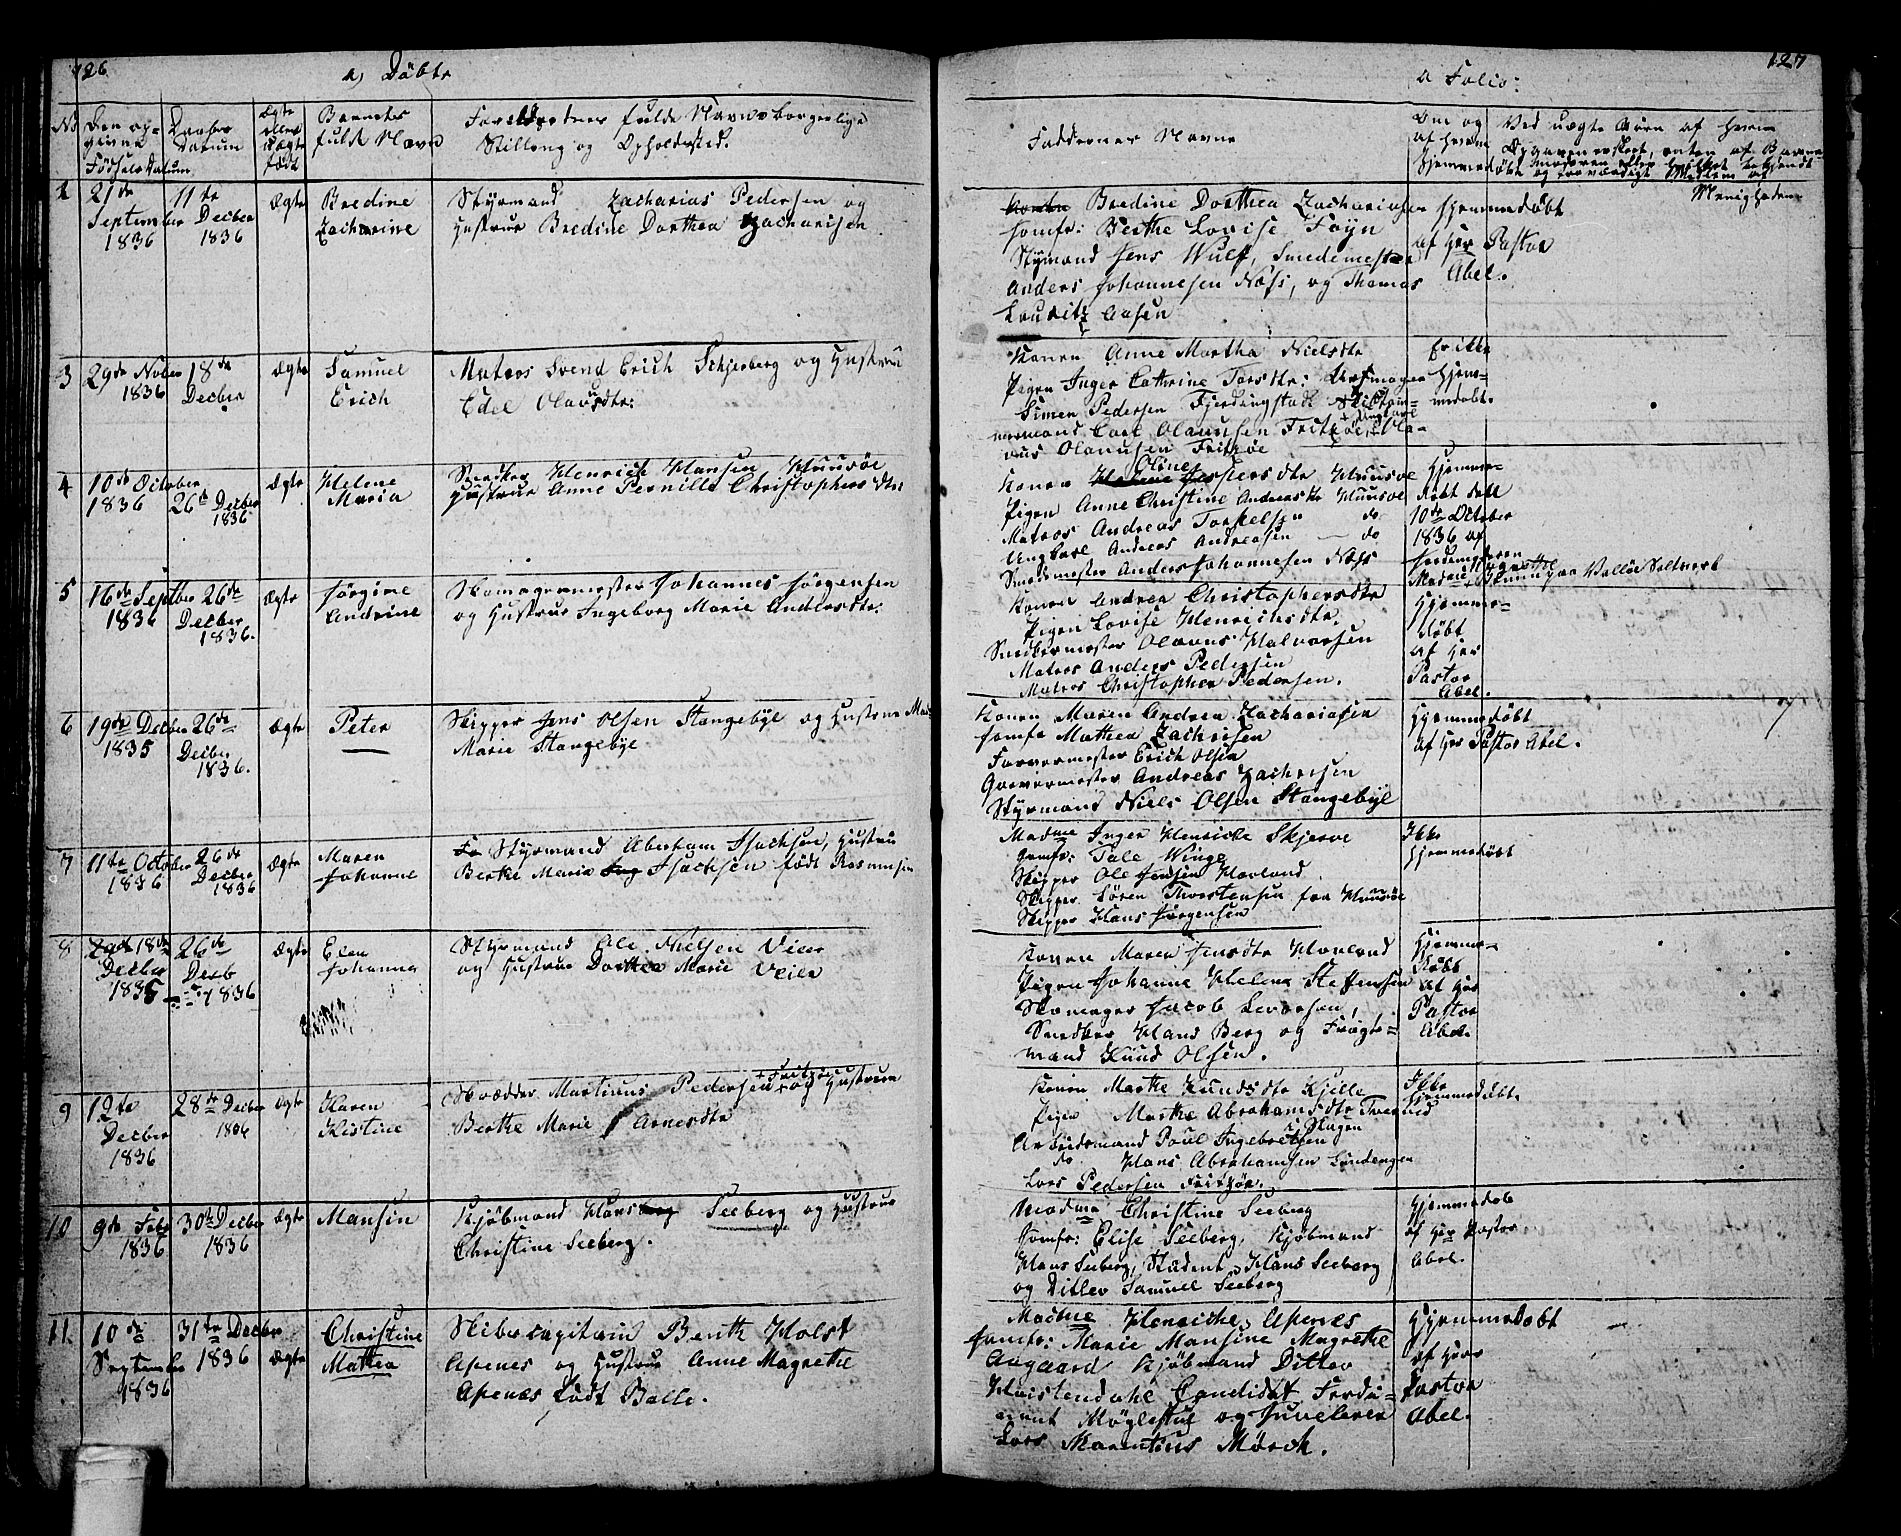 126
a) Döbte
No
Den op-
givne
Födsels Datum
Daabens
Datum
Ægte
eller
uægte
födt
Barnets
fulde Navn
Forældrenes fulde Navne borgerlige
Stilling og Opholdssted.
2
21de
September
1836
11te
Decber
1836
Ægte
Bredine
Zacharine
Styrmand Zacharias Pedersen og
Hustrue Bredine Dorthea Zacharisen
3
29de Novber
1836
18de
Decber
Ægte
Samuel
Erich
Matros Svend Erich Schjerberg og Hustrue
Edel Olausdtr:
4
10de October
1836
26de Decber
1836
Ægte
Helene
Maria
Snedker Henrich Hansen Huusöe
Hustrue Anne Pernille Christophersdtr:
5
16de Septbr
1836
26de
Decber
1836.
Ægte
Jörgine
Andrine
Skomagermester Johannes Jörgensen
og Hustrue Ingeborg Marie Andersdtr:
6
19de Decber
1835
26de
Decber
1836.
Ægte
Peter
Skipper Jens Olsen Stangebye og Hustrue
Marie Stangebye
7
11te October
1836
26de
Decber
1836
Ægte
Maren
Johanne
Styrmand Abraham Isachsen, Hustrue
Berthe Maria Isachsen födt Rasmusen
8
18de
Decber
1835
26de
Decb
1836
Ægte
Elen
Johanna
Styrmand Ole Nielsen Veier
og Hustrue Dorthea Marie Veier
9
12te
Decber
1836
28de Decber
1836
Ægte
Karen
Kistine
Skrædder Martinus Pedersen Fritzöe og Hustrue
Berthe Marie Arnesdtr
10
9de Febr
1836
30te Decber
1836
Ægte
Mansin
Kjöbmand Hans Seeberg og Hustrue
Christine Seeberg.
11.
10de
September
1836
31te Decber
1836
Ægte
Christine
Mathea
Skibscapitain Benth Holst
Apenes og Hustrue Anne Magrethe
Apenes födt Balle.
127
a Folio:
Faddernes Navne
Om og
af hvem
hjemmedöbt
Ved uægte Börn af hvem
Opgaven er skeet, enten af Barne-
moderen eller hvilket bekjendt
og troværdigt Medlem af
Menigheden
Bredine Dorthea Zachariasen
Jomfr: Berthe Lovise Foyn
Styrmand Jens Wulf, Smedemester
Anders Johannesen Næss, og Thomas
Lauritz Aasen
Hjemmedöbt
af Hr Pastor
Abel.
Konen Anne Martha Nielsdtr
Pigen Inger Cathrine Torsdtr:
Simen Pedersen Fjerdingstad
Carl Olaussen Fritzöe, Ola-
us Olaussen Fritzöe
Er ikke
hjem-
medöbt.
Konen Oline Jespersdtr Huusöe
Pigen Anne Christine Andreasdtr Huusöe
Matros Andreas Torkelsen do
Ungkarl Andreas Andreasen do
Smedemester Anders Johannesen Næss
Hjemme-
döbt den
10de October
1836 af
Jordemoderen
Madme
Konen Andrea Christophersdtr
Pigen Lovise Henrichsdtr.
Snedkermester Olavus Halvorsen
Matros Anders Pedersen
Matros Christopher Pedersen.
Hjemme-
döbt
af Hr
Pastor
Abel.
Konen Maren Andrea Zachariasen
Jomfr Mathea Zachrisen
Farvermester Erich Olsen
Garvermester Andreas Zachrisen
Styrmand Niels Olsen Stangebye
Hjemmedöbt
af Hr Pastor Abel.
Madme Inger Henricke Skjerve
Jomfr: Tale Winge
Skipper Ole Jensen Havland
Skipper Sören Thorstensen fra Huusöe
Skipper Hans Jörgensen
Ikke
hjemmedöbt
Konen Maren Jensdtr Havland
Pigen Johanne Helene Steffensen
Skomager Jacob Levorsen,
Snedker Hans Berg og Fragte-
mand Knud Olsen.
Hjemme-
döbt
af Hr
Pastor
Abel.
Konen Marthe Knudsdtr Kjille
Pigen Marthe Abrahamsdtr
Arbeidsmand Poul Ingebretsen Skogen
do Hans Abrahamsen Lundengen
Lars Pedersen Fritzöe.
Ikke
hjemmedöbt.
Madme Christine Seeberg
Jomfr: Elise Seeberg, Kjöbmand
Hans Seeberg, Student Hans Seeberg
og Ditlev Samuel Seeberg
Hjemmedöb
af Hr Pastor
Abel.
Madme Henricke Apenes
Jomfr: Marie Mansine Magrethe
Aagaard Kjöbmand Ditlev
Candidat Ferdi-
nant Möglestue og Juveleren
Lars Marentius Mörch.
Hjemmedöbt
af Herr
Pastor
Abel.